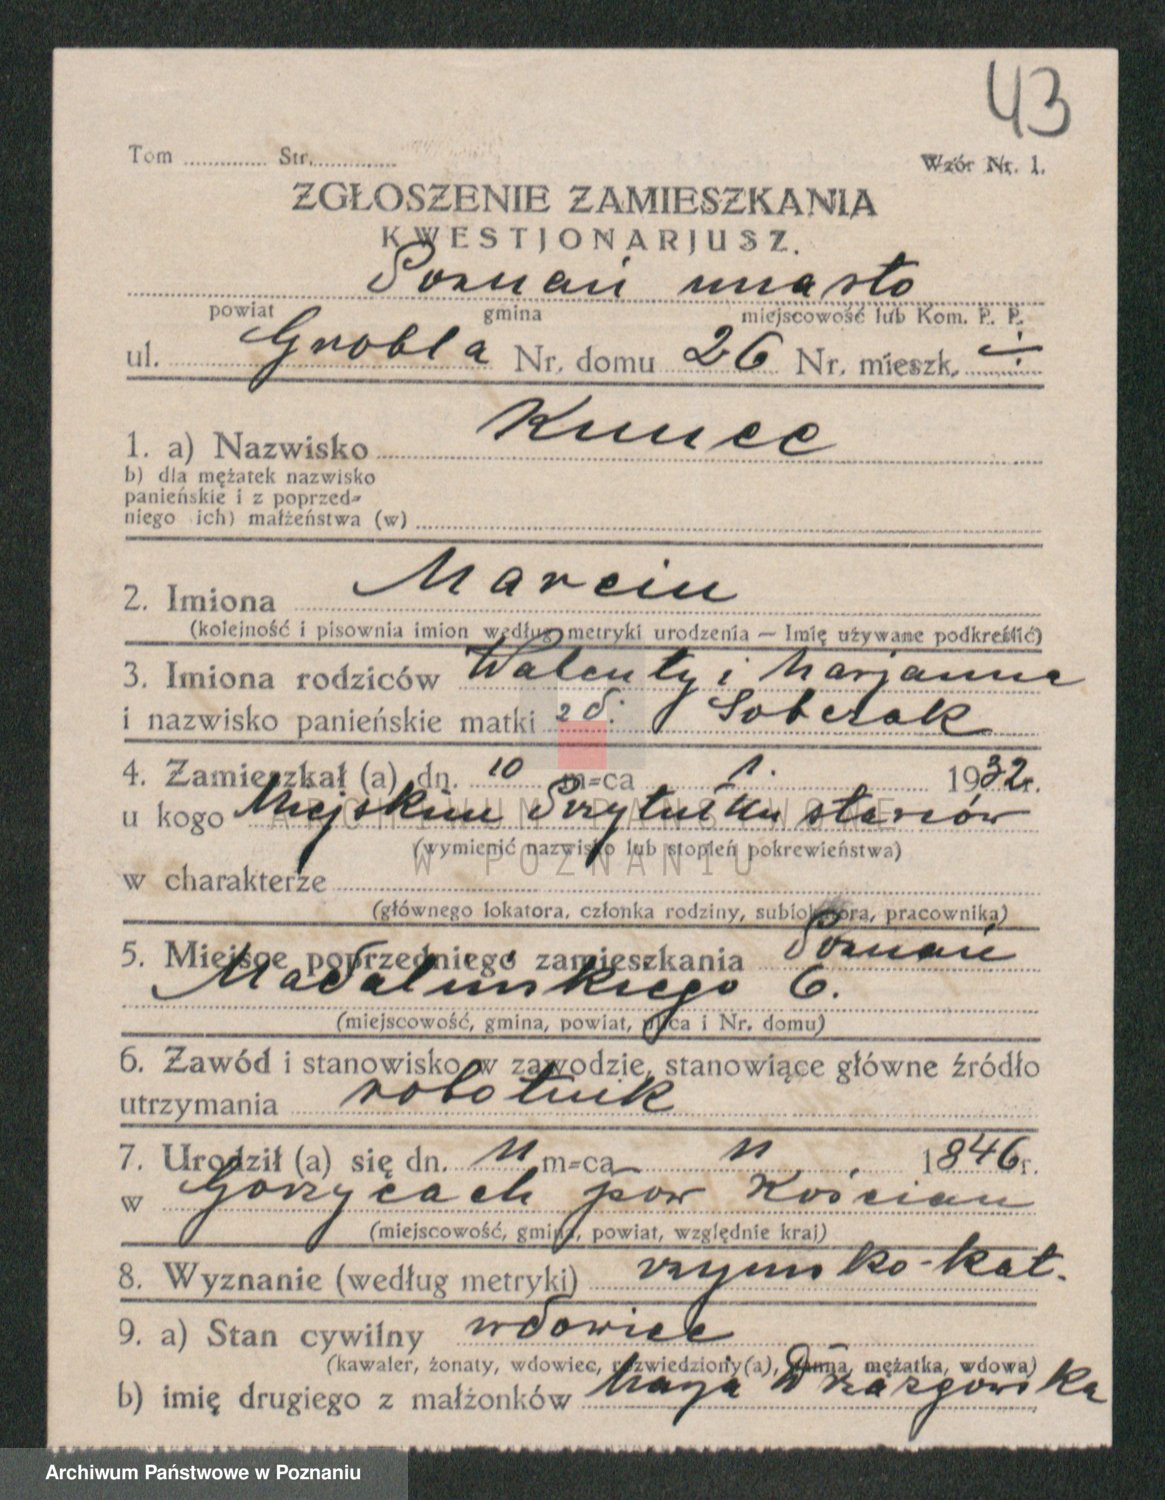 43
Tom ............ Str. ............ Wzór Nr. 1.
ZGŁOSZENIE ZAMIESZKANIA
KWESTJONARJUSZ.
Poznań miasto
powiat gmina miejscowość lub Kom. P. P.
ul. Grobla Nr. domu 26 Nr. mieszk.
Kunec
1. a) Nazwisko
b) dla mężatek nazwisko
panieńskie i z poprzed-
niego (ich) małżeństwa (w)
2. Imiona Marcin
(kolejność i pisownia imion według metryki urodzenia — Imię używane podkreślić)
3. Imiona rodziców Walenty i Marjanna
i nazwisko panieńskie matki zd. Sobczak
4. Zamieszkał (a) dn. 10 m-ca 1. 1932 r.
u kogo Miejskim Przytułku starców
(wymienić nazwisko lub stopień pokrewieństwa)
w charakterze
(głównego lokatora, członka rodziny, sublokatora, pracownika)
5. Miejsce poprzedniego zamieszkania Poznań
Madalińskiego 6.
(miejscowość, gmina, powiat, ulica i Nr. domu)
6. Zawód i stanowisko w zawodzie, stanowiące główne źródło
utrzymania robotnik
7. Urodził (a) się dn. 11 m-ca 11 1846 r.
w Gorzycach pow Kościan
(miejscowość, gmina, powiat, względnie kraj)
8. Wyznanie (według metryki) rzymsko-kat.
9. a) Stan cywilny wdowiec
(kawaler, żonaty, wdowiec, rozwiedziony(a), panna, mężatka, wdowa)
b) imię drugiego z małżonków Drzazgowska
ARCHIWUM PAŃSTWOWE
W POZNANIU
Archiwum Państwowe w Poznaniu